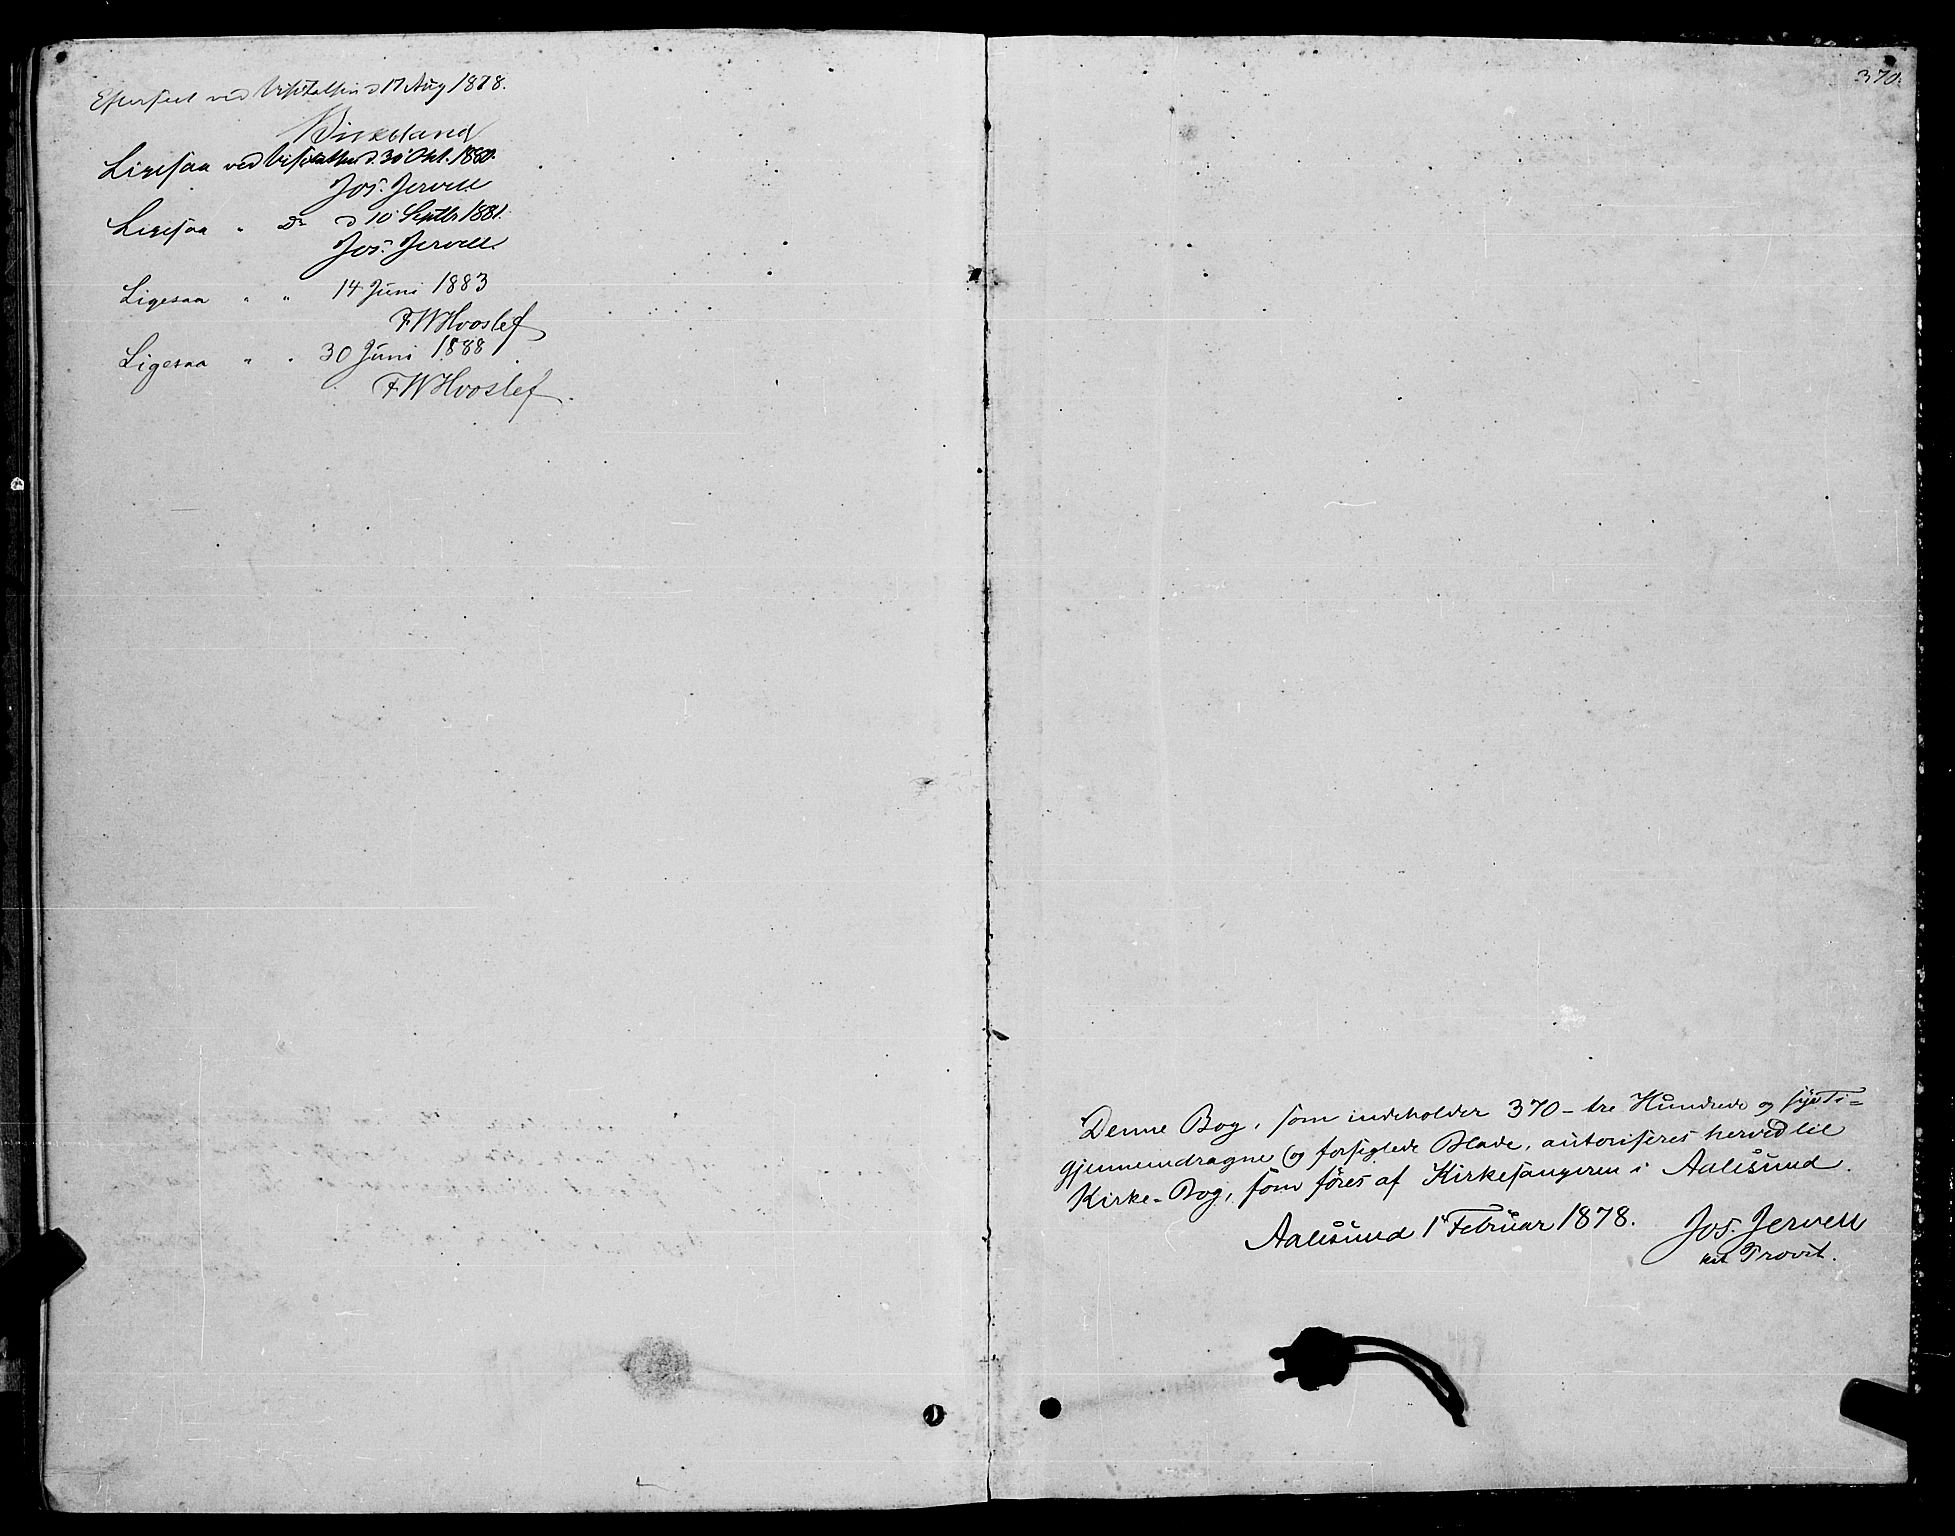 Efterseet ved Visitatsen d 17 Aug 1878.
Birkeland
Ligesaa ved Visitatsen d. 30 Okt. 1880.
Jos. Jervell
Ligesaa " Do d 10 Septbr 1881.
Jos. Jervell.
Ligesaa " " 14 Juni 1883
FWHvoslef
Ligesaa " " 30 Juni 1888
FWHvoslef.
370.
Denne Bog, som indeholder 370 - tre Hundrede og sytti =
gjennemdragne og forseglede Blade, autoriseres herved til
Kirke-Bog, som føres af Kirkesangeren i Aalesund.
Aalesund 1 Februar 1878. Jos. Jervell
Provst.